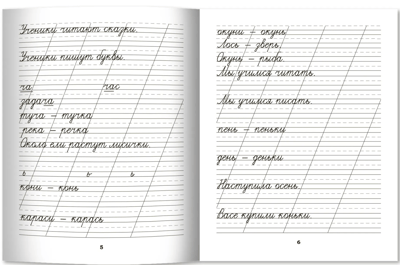 Ученики читают сказки.
Ученики пишут буквы.
ча час
задача
туча – тучка
река – речка
Около ели растут лисички.
ь ь ь
кони – конь
караси – карась
5
окуни – окунь
Лось – зверь.
Окунь – рыба.
Мы учимся читать.
Мы учимся писать.
пень – пеньки
день – деньки
Наступила осень.
Васе купили коньки.
6